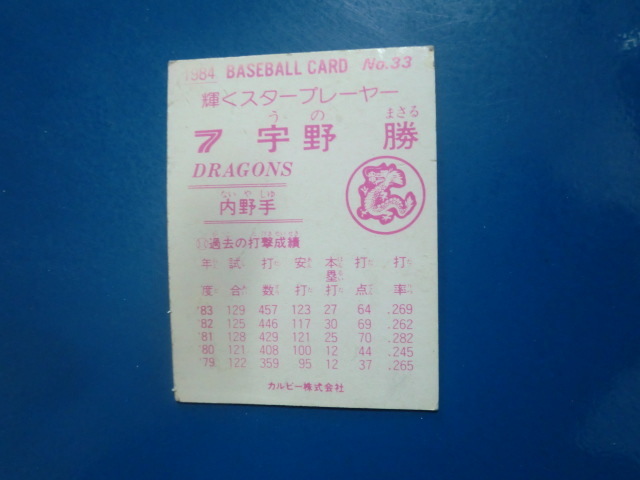 1984 BASEBALL CARD No.33
輝くスタープレーヤー
うの まさる
7 宇野 勝
DRAGONS
ないやしゅ
内野手
過去の打撃成績
年度 試合 打数 安打 本塁打 打点 打率
'83 129 457 123 27 64 .269
'82 125 446 117 30 69 .262
'81 128 429 121 25 70 .282
'80 121 408 100 12 44 .245
'79 122 359 95 12 37 .265
カルビー株式会社